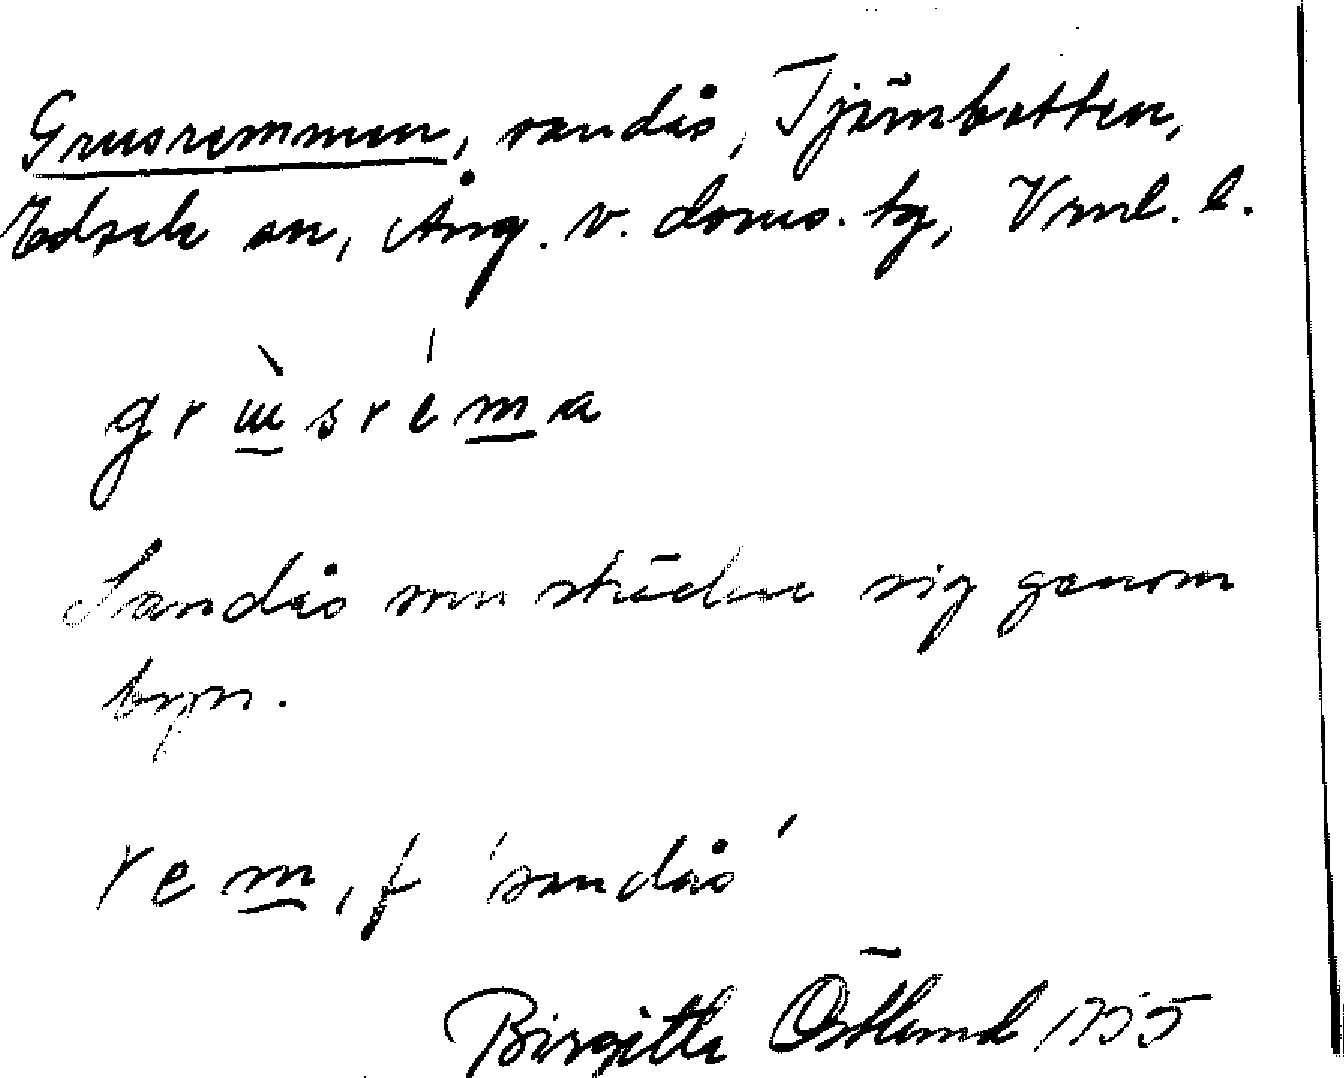 Grusremmen, sandås, Tjärnbotten,
Edslek sn, Äng. v. doms. tg, Vrml. l.
grɯ̀srém̲a
Sandås som sträcker sig genom
byn.
rem̲, f 'sandås'
Birgitta Östlund 1955